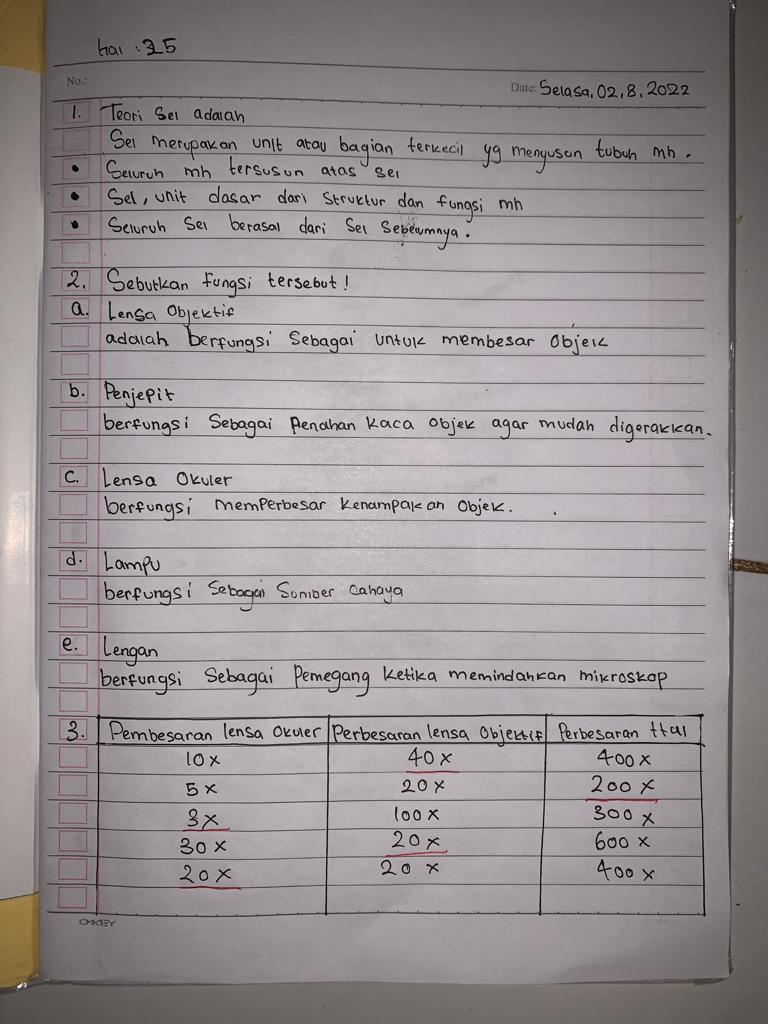 hal : 35
No.:
Date: Selasa, 02, 8, 2022
1. Teori Sel adalah
Sel merupakan unit atau bagian terkecil yg menyusun tubuh mh.
• Seluruh mh tersusun atas sel
• Sel, unit dasar dari struktur dan fungsi mh
• Seluruh Sel berasal dari Sel Sebelumnya.
2. Sebutkan fungsi tersebut!
a. Lensa Objektif
adalah berfungsi Sebagai untuk membesar Objek
b. Penjepit
berfungsi Sebagai Penahan kaca objek agar mudah digerakkan.
c. Lensa Okuler
berfungsi memperbesar kenampakan Objek.
d. Lampu
berfungsi Sebagai Sumber Cahaya
e. Lengan
berfungsi Sebagai Pemegang ketika memindahkan mikroskop
3. Pembesaran lensa Okuler Perbesaran lensa Objektif Perbesaran ttal
10x 40x 400x
5x 20x 200x
3x 100x 300x
30x 20x 600x
20x 20x 400x
OKEY